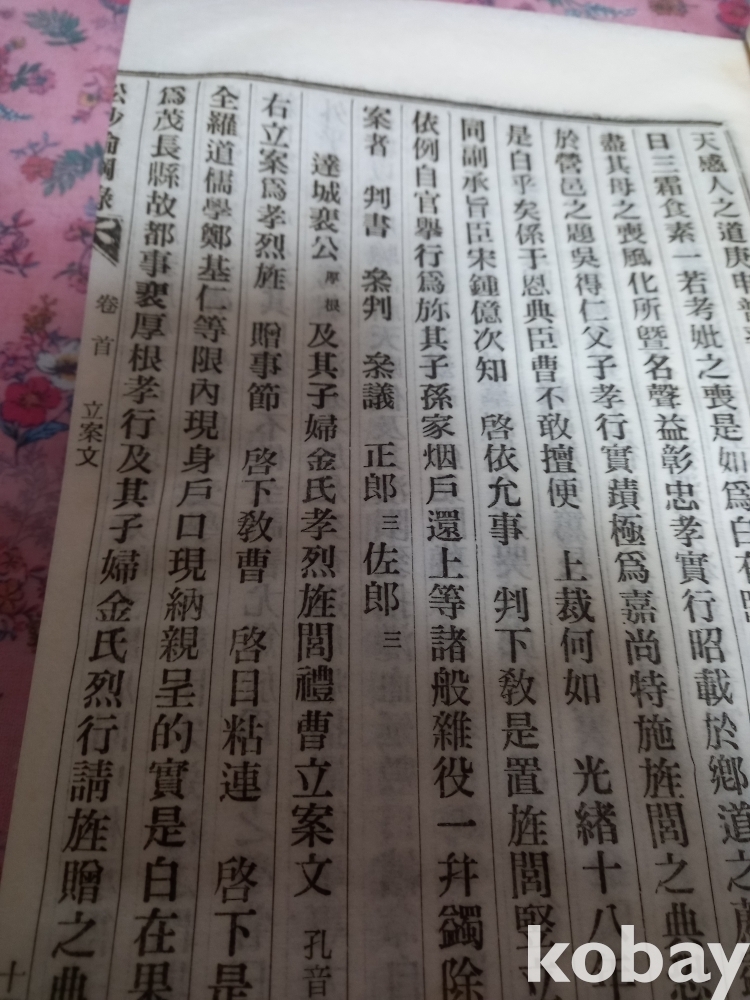 天感人之道庚申
日三霜食素一若考妣之喪是如爲白在
盡其母之喪風化所曁名聲益彰忠孝實行昭載於鄕道之
於營邑之題吳得仁父子孝行實蹟極爲嘉尙特施旌閭之典恐
是白乎矣係于恩典臣曹不敢擅便 上裁何如 光緖十八年
同副承旨臣宋鍾億次知 啓依允事 判下敎是置旌閭竪立
依例自官擧行爲旀其子孫家烟戶還上等諸般雜役一幷蠲除
案者 判書 叅判 叅議 正郎 三 佐郎 三
達城裵公 厚根 及其子婦金氏孝烈旌閭禮曹立案文 孔音
右立案爲孝烈旌 贈事節 啓下敎曹 啓目粘連 啓下是
全羅道儒學鄭基仁等限內現身戶口現納親呈的實是白在果
爲茂長縣故都事裵厚根孝行及其子婦金氏烈行請旌贈之典
松沙 綱錄 卷首 立案文 十
kobay